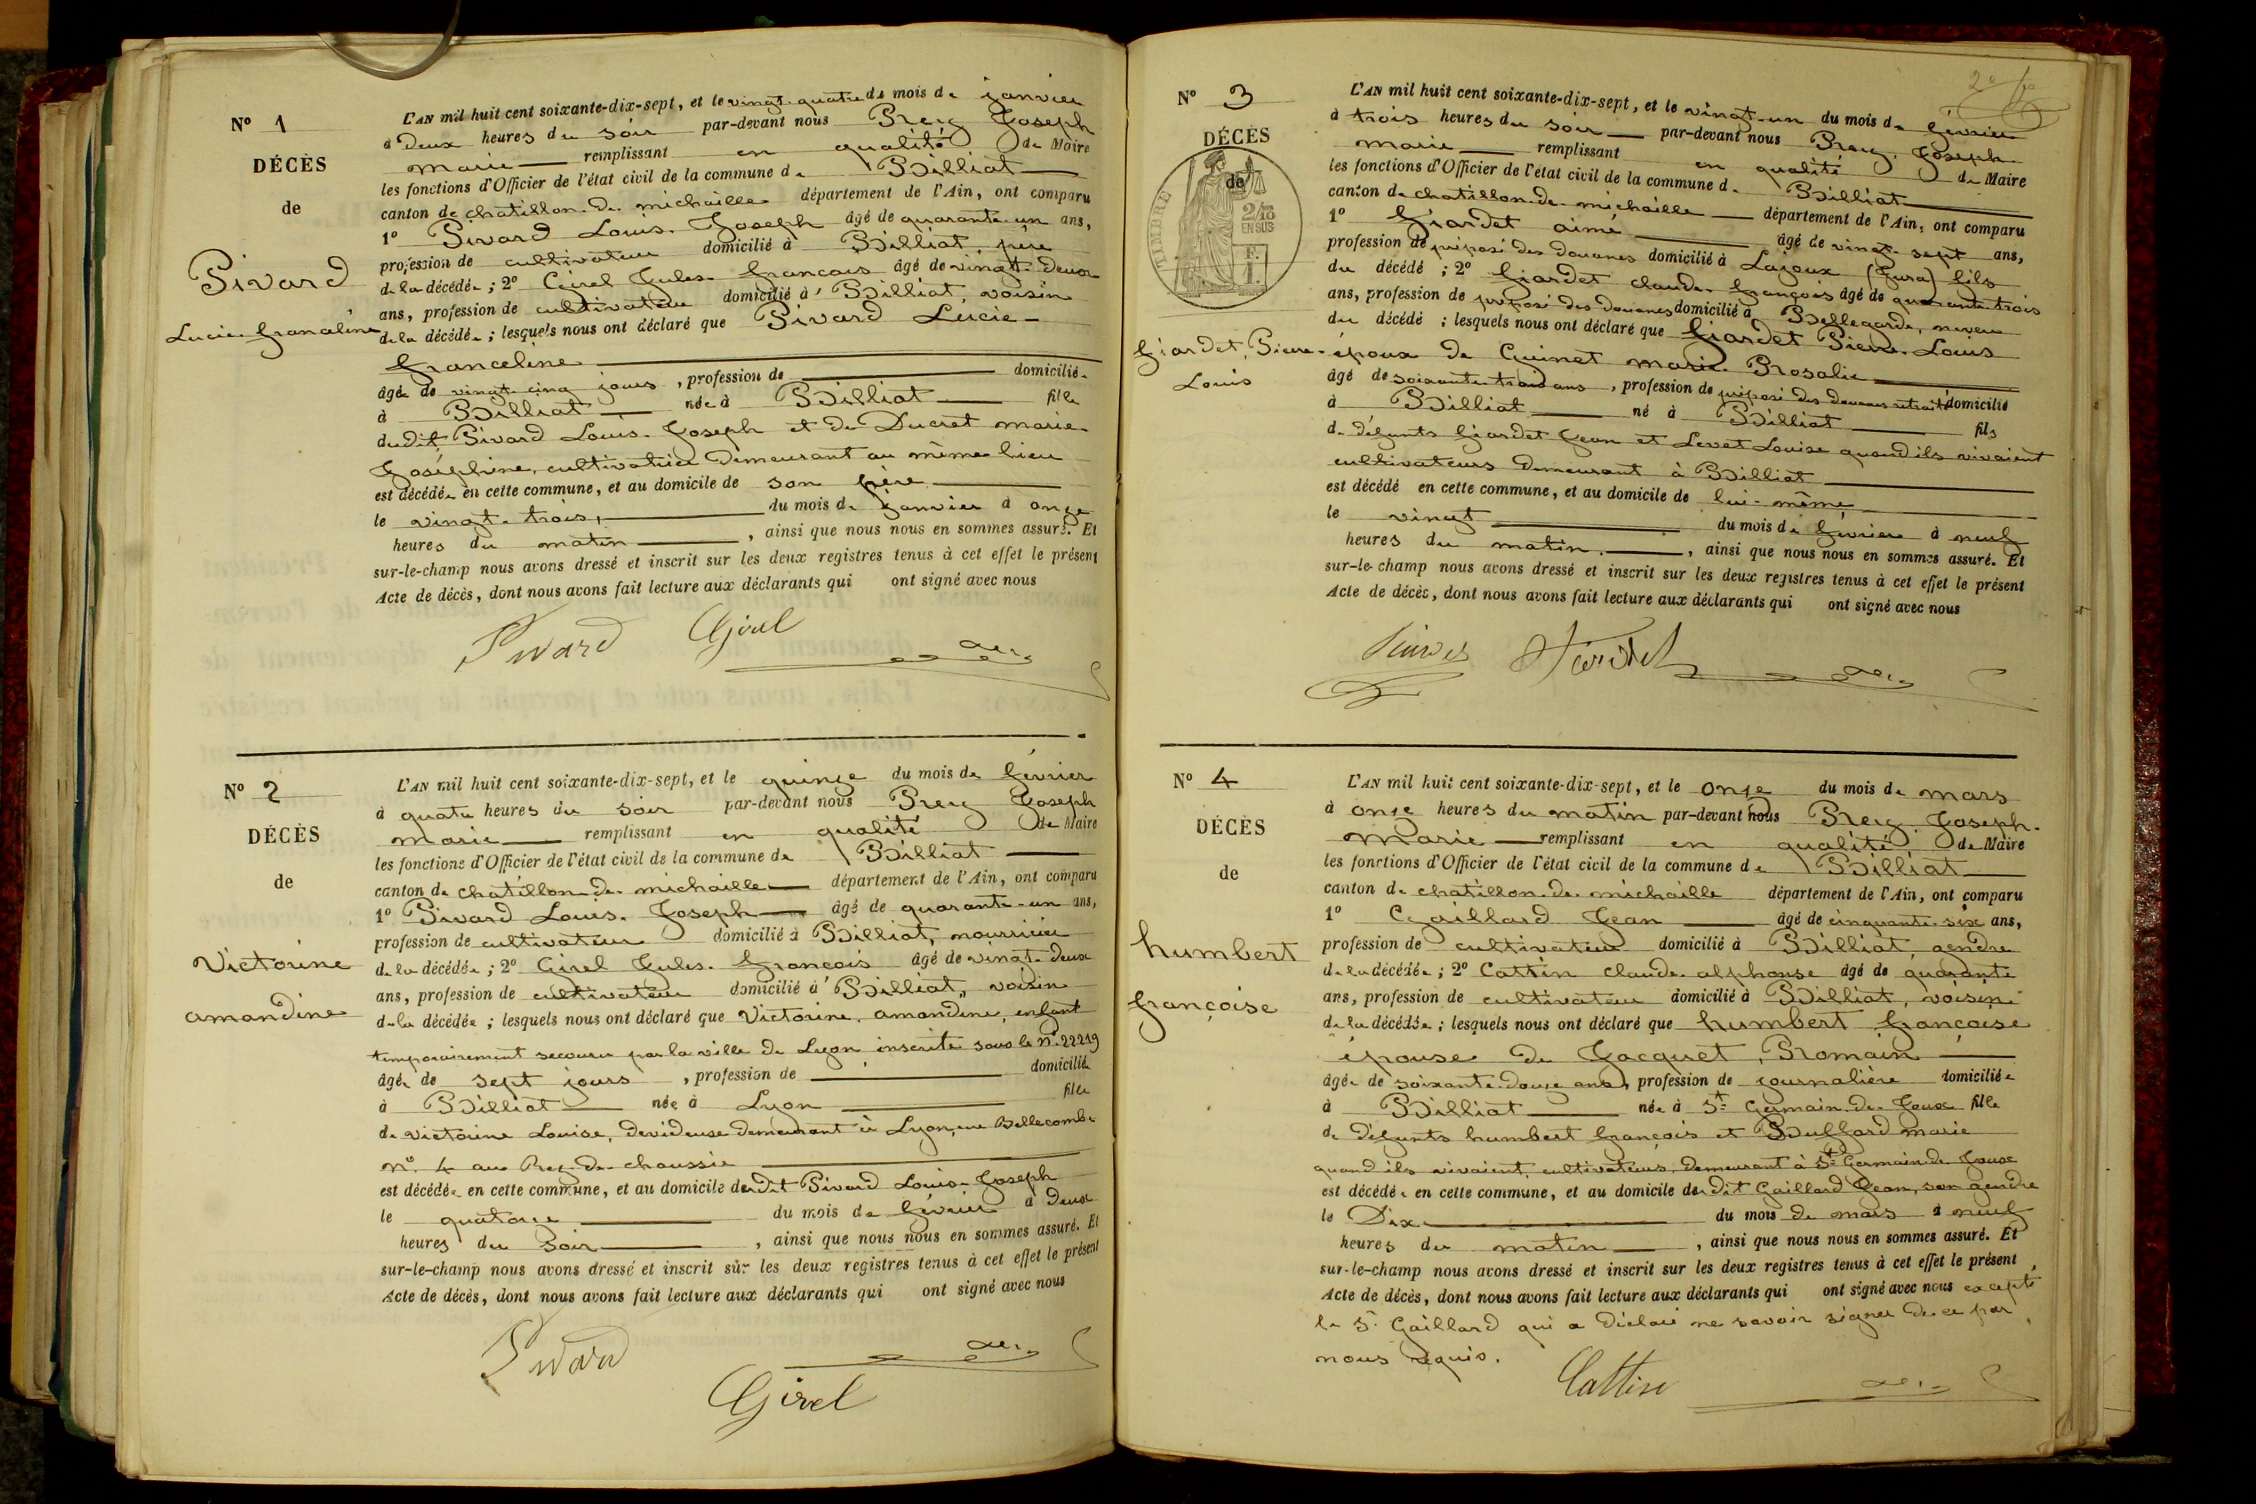 N° 1
DÉCÈS
de
Pivard
Lucie franceline
L'AN mil huit cent soixante-dix-sept, et le vingt-quatre du mois de janvier
à Deux heures du soir par-devant nous Joseph
marie remplissant en qualité de Maire
les fonctions d'Officier de l'état civil de la commune de Billiat
canton de chatillon-de-michaille département de l'Ain, ont comparu
1° Pivard Louis Joseph âgé de quarante-un ans,
profession de cultivateur domicilié à Billiat, père
de la décédée ; 2° Girel Jules francois âgé de vingt-deux
ans, profession de cultivateur domicilié à Billiat, voisin
de la décédée ; lesquels nous ont déclaré que Pivard Lucie
franceline
âgée de vingt-cinq jours, profession de domiciliée
à Billiat née à Billiat fille
dudit Pivard Louis Joseph et de Ducret marie
Joséphine, cultivatrice demeurant au même lieu
est décédée en cette commune, et au domicile de son père
le vingt-trois, du mois de janvier à onze
heures du matin, ainsi que nous nous en sommes assuré. Et
sur-le-champ nous avons dressé et inscrit sur les deux registres tenus à cet effet le présent
Acte de décès, dont nous avons fait lecture aux déclarants qui ont signé avec nous
Pivard Girel
N° 2
DÉCÈS
de
Victorine
amandine
L'AN mil huit cent soixante-dix-sept, et le quinze du mois de février
à quatre heures du soir par-devant nous Joseph
marie remplissant en qualité de Maire
les fonctions d'Officier de l'état civil de la commune de Billiat
canton de chatillon-de-michaille département de l'Ain, ont comparu
1° Pivard Louis Joseph âgé de quarante-un ans,
profession de cultivateur domicilié à Billiat, nourricier
de la décédée ; 2° Girel Jules françois âgé de vingt-deux
ans, profession de cultivateur domicilié à Billiat, voisin
de la décédée ; lesquels nous ont déclaré que Victorine amandine, enfant
temporairement secouru par la ville de Lyon inscrite sous le n° 22219
âgée de sept jours, profession de domiciliée
à Billiat née à Lyon fille
de victorine Louise, devideuse demeurant à Lyon, rue Bellecombe
n° 4 au Rez-de-chaussée
est décédée en cette commune, et au domicile du dit Pivard Louis Joseph
le quatorze du mois de février à Deux
heures du soir, ainsi que nous nous en sommes assuré. Et
sur-le-champ nous avons dressé et inscrit sur les deux registres tenus à cet effet le présent
Acte de décès, dont nous avons fait lecture aux déclarants qui ont signé avec nous
Pivard
Girel
N° 3
DÉCÈS
de
TIMBRE
2/10 EN SUS
fiardet, Pierre
Louis
L'AN mil huit cent soixante-dix-sept, et le vingt-un du mois de février
à trois heures du soir par-devant nous Joseph
marie remplissant en qualité de Maire
les fonctions d'Officier de l'état civil de la commune de Billiat
canton de chatillon-de-michaille département de l'Ain, ont comparu
1° fiardet aimé âgé de vingt-sept ans,
profession de préposé des douanes domicilié à Lajoux (Jura) fils
du décédé ; 2° fiardet claude françois âgé de quarante-trois
ans, profession de préposé des douanes domicilié à Bellegarde, neveu
du décédé ; lesquels nous ont déclaré que fiardet Pierre Louis
époux de Guinet marie Rosalie
âgé de soixante-trois ans, profession de préposé des douanes retraité domicilié
à Billiat né à Billiat fils
de défunts fiardet Jean et Levet Louise quand ils vivaient
cultivateurs demeurant à Billiat
est décédé en cette commune, et au domicile de lui-même
le vingt du mois de février à neuf
heures du matin, ainsi que nous nous en sommes assuré. Et
sur-le-champ nous avons dressé et inscrit sur les deux registres tenus à cet effet le présent
Acte de décès, dont nous avons fait lecture aux déclarants qui ont signé avec nous
N° 4
DÉCÈS
de
humbert
françoise
L'AN mil huit cent soixante-dix-sept, et le onze du mois de mars
à onze heures du matin par-devant nous Joseph
Marie remplissant en qualité de Maire
les fonctions d'Officier de l'état civil de la commune de Billiat
canton de chatillon-de-michaille département de l'Ain, ont comparu
1° Gaillard Jean âgé de cinquante-six ans,
profession de cultivateur domicilié à Billiat, gendre
de la décédée ; 2° Cattin claude alphonse âgé de quarante
ans, profession de cultivateur domicilié à Billiat, voisin
de la décédée ; lesquels nous ont déclaré que humbert françoise
épouse de Jacquet, Romain
âgée de soixante-douze ans, profession de journalière domiciliée
à Billiat née à St Germain-de-Joux fille
de défunts humbert françois et Buffard marie
quand ils vivaient, cultivateurs, demeurant à St Germain-de-Joux
est décédée en cette commune, et au domicile du dit Gaillard Jean, son gendre
le Dix du mois de mars à neuf
heures du matin, ainsi que nous nous en sommes assuré. Et
sur-le-champ nous avons dressé et inscrit sur les deux registres tenus à cet effet le présent
Acte de décès, dont nous avons fait lecture aux déclarants qui ont signé avec nous excepté
le Sr Gaillard qui a déclaré ne savoir signer de ce par
nous requis.
Cattin